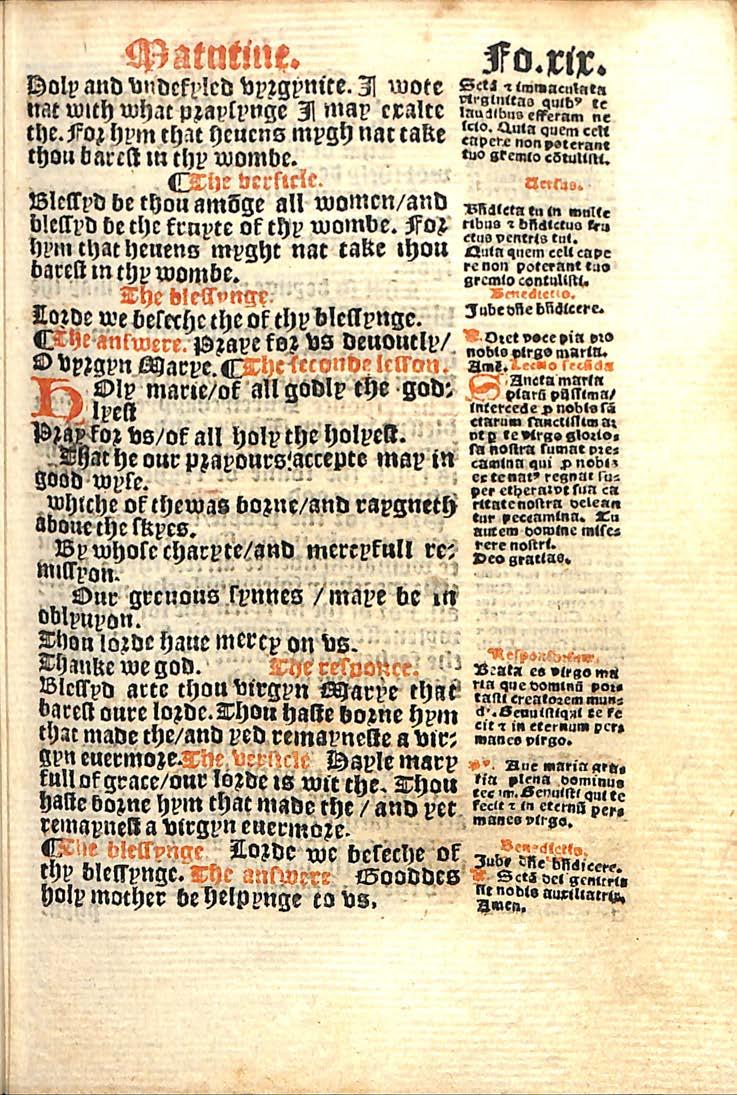 Matutine.
Holy and vndefyled vyrgynite. I wote
nat with what praysynge I may exalte
the. For hym that heuens mygh nat take
thou barest in thy wombe.
¶The versicle.
Blessyd be thou amōge all women/and
blessyd be the fruyte of thy wombe. For
hym that heuens myght nat take thou
barest in thy wombe.
The blessynge.
Lorde we beseche the of thy blessynge.
¶The answere. Praye for vs deuoutly/
O vyrgyn Marye. ¶The seconde lesson.
HOly marie/of all godly the god⸗
lyest
Pray for vs/of all holy the holyest.
That he our prayours accepte may in
good wyse.
whiche of thewas borne/and raygneth
aboue the skyes.
By whose charyte/and mercyfull re⸗
missyon.
Our greuous synnes /maye be in
oblyuyon.
Thou lorde haue mercy on vs.
Thanke we god. The responce.
Blessyd arte thou virgyn Marye that
barest oure lorde. Thou haste borne hym
that made the/and yed remayneste a vir⸗
gyn euermore. The versicle Hayle mary
full of grace/our lorde is wit the. Thou
haste borne hym that made the / and yet
remaynest a virgyn euermore.
¶The blessynge Lorde we beseche of
thy blessynge. The answere Gooddes
holy mother be helpynge to vs.
Fo.xix.
Sctā ⁊ immaculata
virginitas quibꝰ te
laudibus efferam ne
scio. Quia quem celi
capere non poterant
tuo gremio cōtulisti.
Versus.
Bn̄dicta tu in mulie
ribus ⁊ bn̄dictus fru
ctus ventris tui.
Quia quem celi cape
re non poterant tuo
gremio contulisti.
Benedictio.
Jube dn̄e bn̄dicere.
Oret voce pia pro
nobis virgo maria.
Amē. Lectio secūda
SAncta maria
piarū piissima/
intercede ꝑ nobis sā
ctarum sanctissima:
vt ꝑ te virgo glorio⸗
sa nostra sumat pre⸗
camina qui ꝓ nobis
ex te natꝰ regnat su⸗
per ethera: vt sua ca
ritate nostra delean
tur peccamina. Tu
autem domine mise⸗
rere nostri.
Deo gratias.
Responsorium.
Beata es virgo ma
ria que dominū por⸗
tasti creatorem mun⸗
di. Genuisti qui te fe
cit ⁊ in eternum per⸗
manes virgo.
Aue maria gra⸗
tia plena dominus
tecum. Genuisti qui te
fecit ⁊ in eternū per⸗
manes virgo.
Benedictio.
Jube dn̄e bn̄dicere.
Sctā dei genitrix
sit nobis auxiliatrix.
Amen.